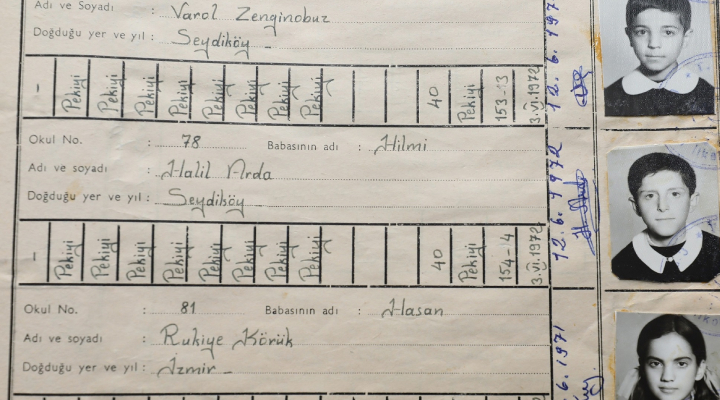 Adı ve Soyadı : Varol Zenginobuz
Doğduğu yer ve yıl : Seydiköy -
- Pekiyi Pekiyi Pekiyi Pekiyi Pekiyi Pekiyi Pekiyi Pekiyi 40 Pekiyi 153-13 3.VI.1972
12.6.197
Okul No. : 78 Babasının adı : Hilmi
Adı ve soyadı : Halil Arda
Doğduğu yer ve yıl : Seydiköy
- Pekiyi Pekiyi Pekiyi Pekiyi Pekiyi Pekiyi Pekiyi 40 Pekiyi 154-4 3.VI.1972
12.6.1972
Okul No. : 81 Babasının adı : Hasan
Adı ve soyadı : Rukiye Körük
Doğduğu yer ve yıl : İzmir -
6.1971